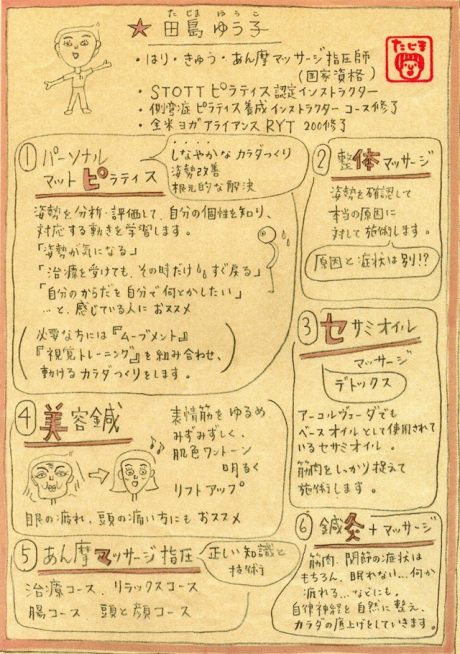 たじま ゆうこ
★ 田島 ゆう子
たじま
・はり・きゅう・あん摩マッサージ指圧師
(国家資格)
・STOTT ピラティス認定インストラクター
・側弯症ピラティス養成インストラクターコース修了
・全米ヨガアライアンス RYT 200修了
① パーソナル
マットピラティス
しなやかなカラダつくり
姿勢改善
根元的な解決
姿勢を分析・評価して、自分の個性を知り、
対応する動きを学習します。
「姿勢が気になる」
「治療を受けても、その時だけ すぐ戻る」
「自分のからだを自分で何とかしたい」
…と、感じている人におススメ
必要な方には『ムーブメント』
『視覚トレーニング』を組み合わせ、
動けるカラダつくりをします。
② 整体マッサージ
姿勢を確認して
本当の原因に
対して施術します。
原因と症状は別!?
③ セサミオイル
マッサージ
デトックス
アーユルヴェーダでも
ベースオイルとして使用されて
いるセサミオイル。
筋肉をしっかり捉えて
施術します。
④ 美容鍼
表情筋をゆるめ
みずみずしく、
肌色ワントーン
明るく
リフトアップ
眼の疲れ、頭の痛い方にもおススメ
⑤ あん摩マッサージ指圧
正しい知識と
技術
治療コース、リラックスコース
腸コース 頭と顔コース
⑥ 鍼灸+マッサージ
筋肉、関節の症状は
もちろん、眠れない…何か
疲れる…などにも。
自律神経を自然に整え、
カラダの底上げをしていきます。